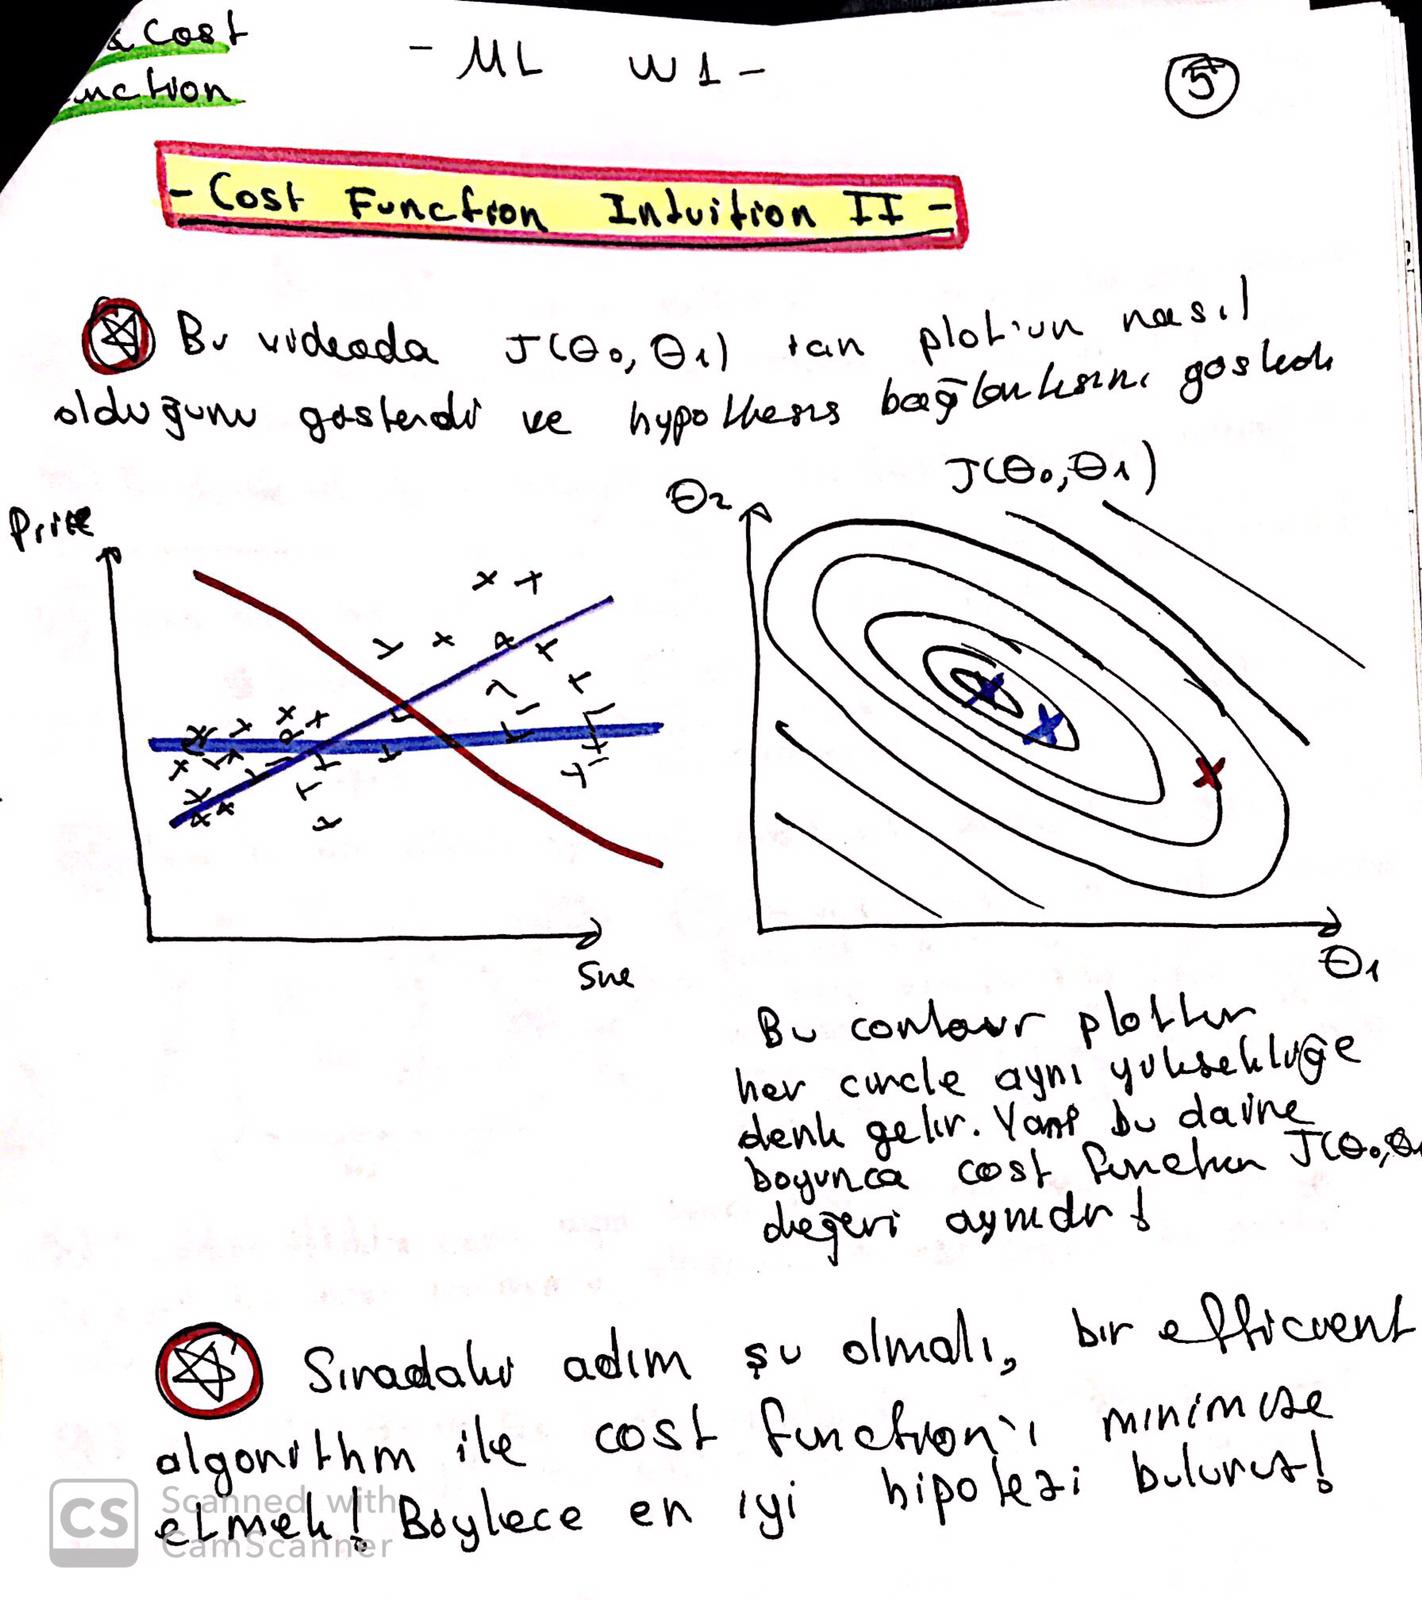 & Cost
unction
- ML W1 -
5
- Cost Function Intuition II -
Bu videoda J(θ₀, θ₁) ıçın plot'un nasıl
olduğunu gösterdi ve hypothesis bağlantısını gösterdi
J(θ₀, θ₁)
Price
θ₂
Size
θ₁
Bu contour plottur
her cırcle aynı yüksekliğe
denk gelir. Yani bu daire
boyunca cost function J(θ₀,θ₁
değeri aynıdır!
Sıradaki adım şu olmalı, bir efficient
algorithm ile cost function'ı minimize
etmek! Böylece en iyi hipotezi buluruz!
CS Scanned with
CamScanner